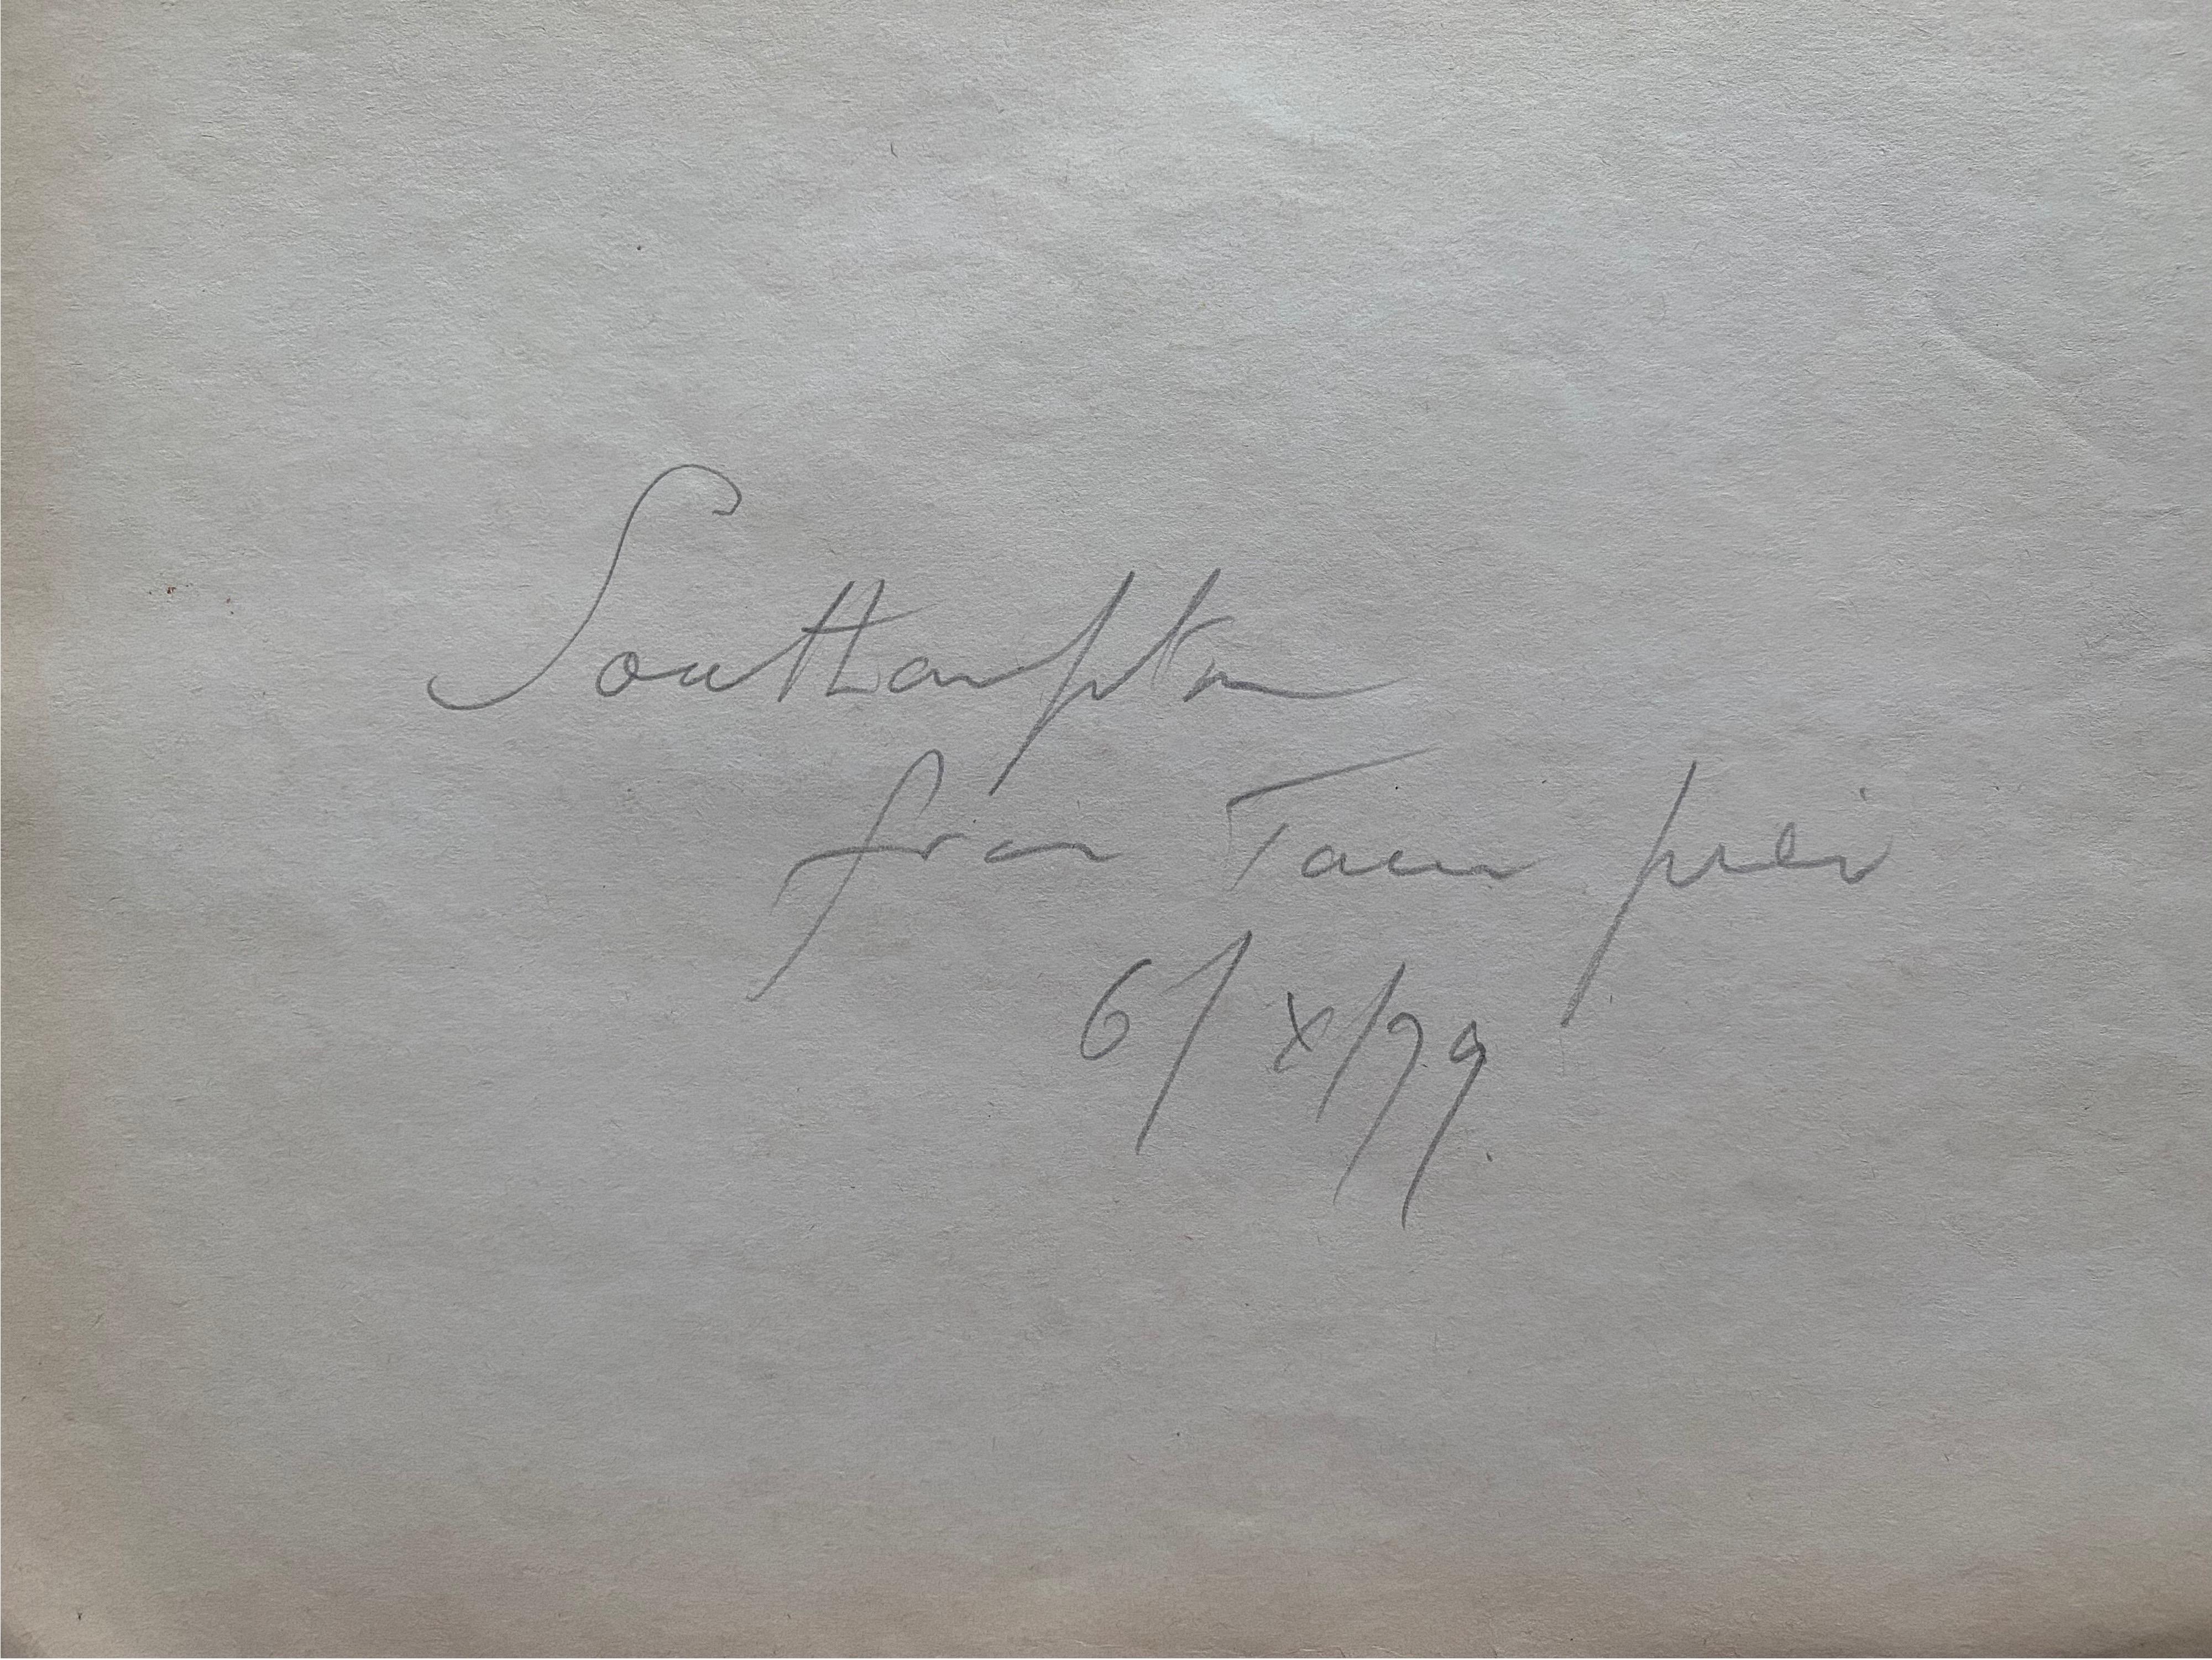 Southampton
from Town pier
6/X/79.